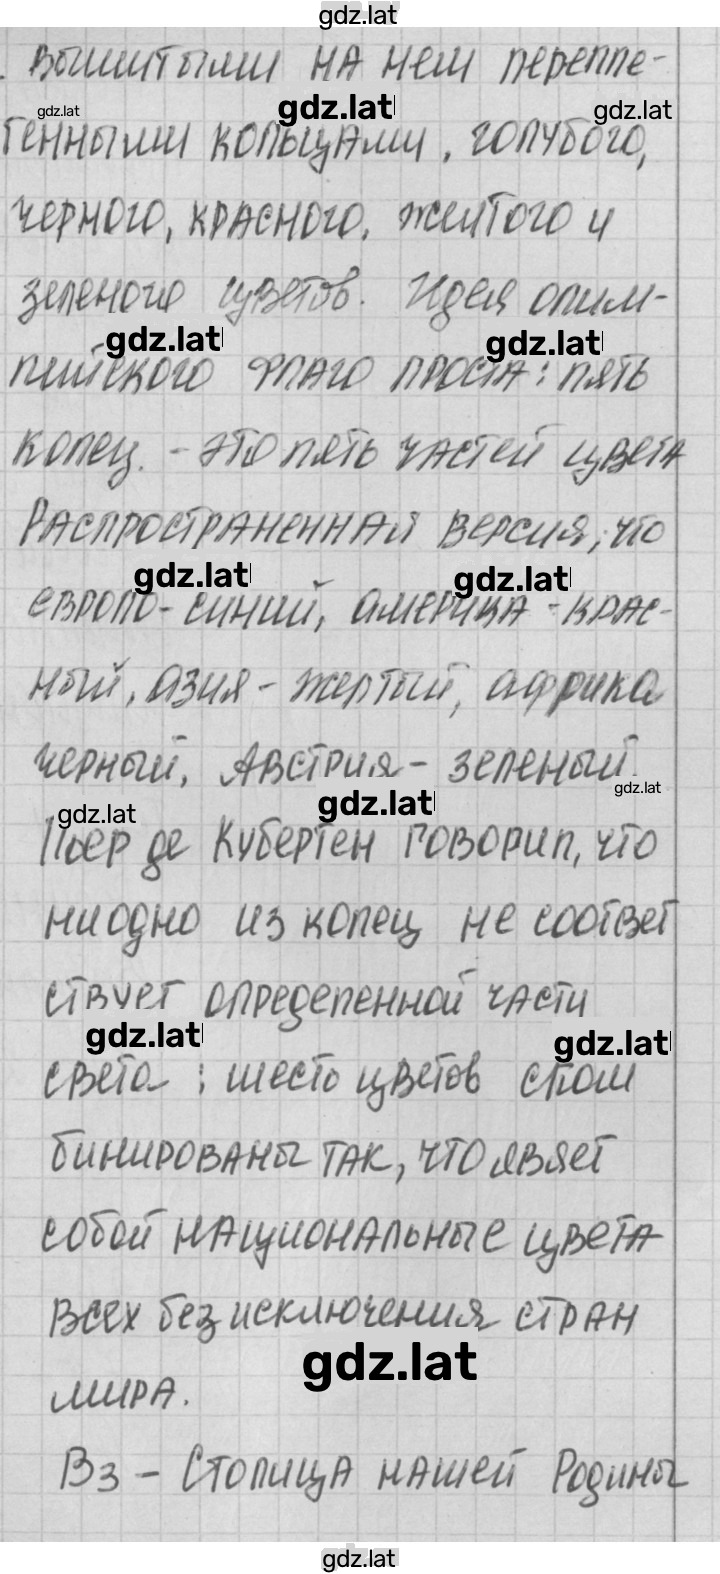 gdz.lat
. вышитыми на нем перепле-
gdz.lat gdz.lat gdz.lat
тенными кольцами, голубого,
черного, красного, желтого и
зеленого цветов. Идея олим-
gdz.lat gdz.lat
пийского флаго проста: пять
колец. - это пять частей цвета
Распространенная версия, что
gdz.lat gdz.lat
европо-синий, америка - крас-
ный, азия - желтый, африка
черный, Австрия - зеленый.
gdz.lat gdz.lat gdz.lat
Пьер де Кубертен говорил, что
ни одно из колец не соответ
ствует определенной части
gdz.lat gdz.lat
света : шесто цветов слом
бинированы так, что явяет
собой национальные цвета
всех без исключения стран
gdz.lat
мира.
В3 - Столица нашей Родины
gdz.lat